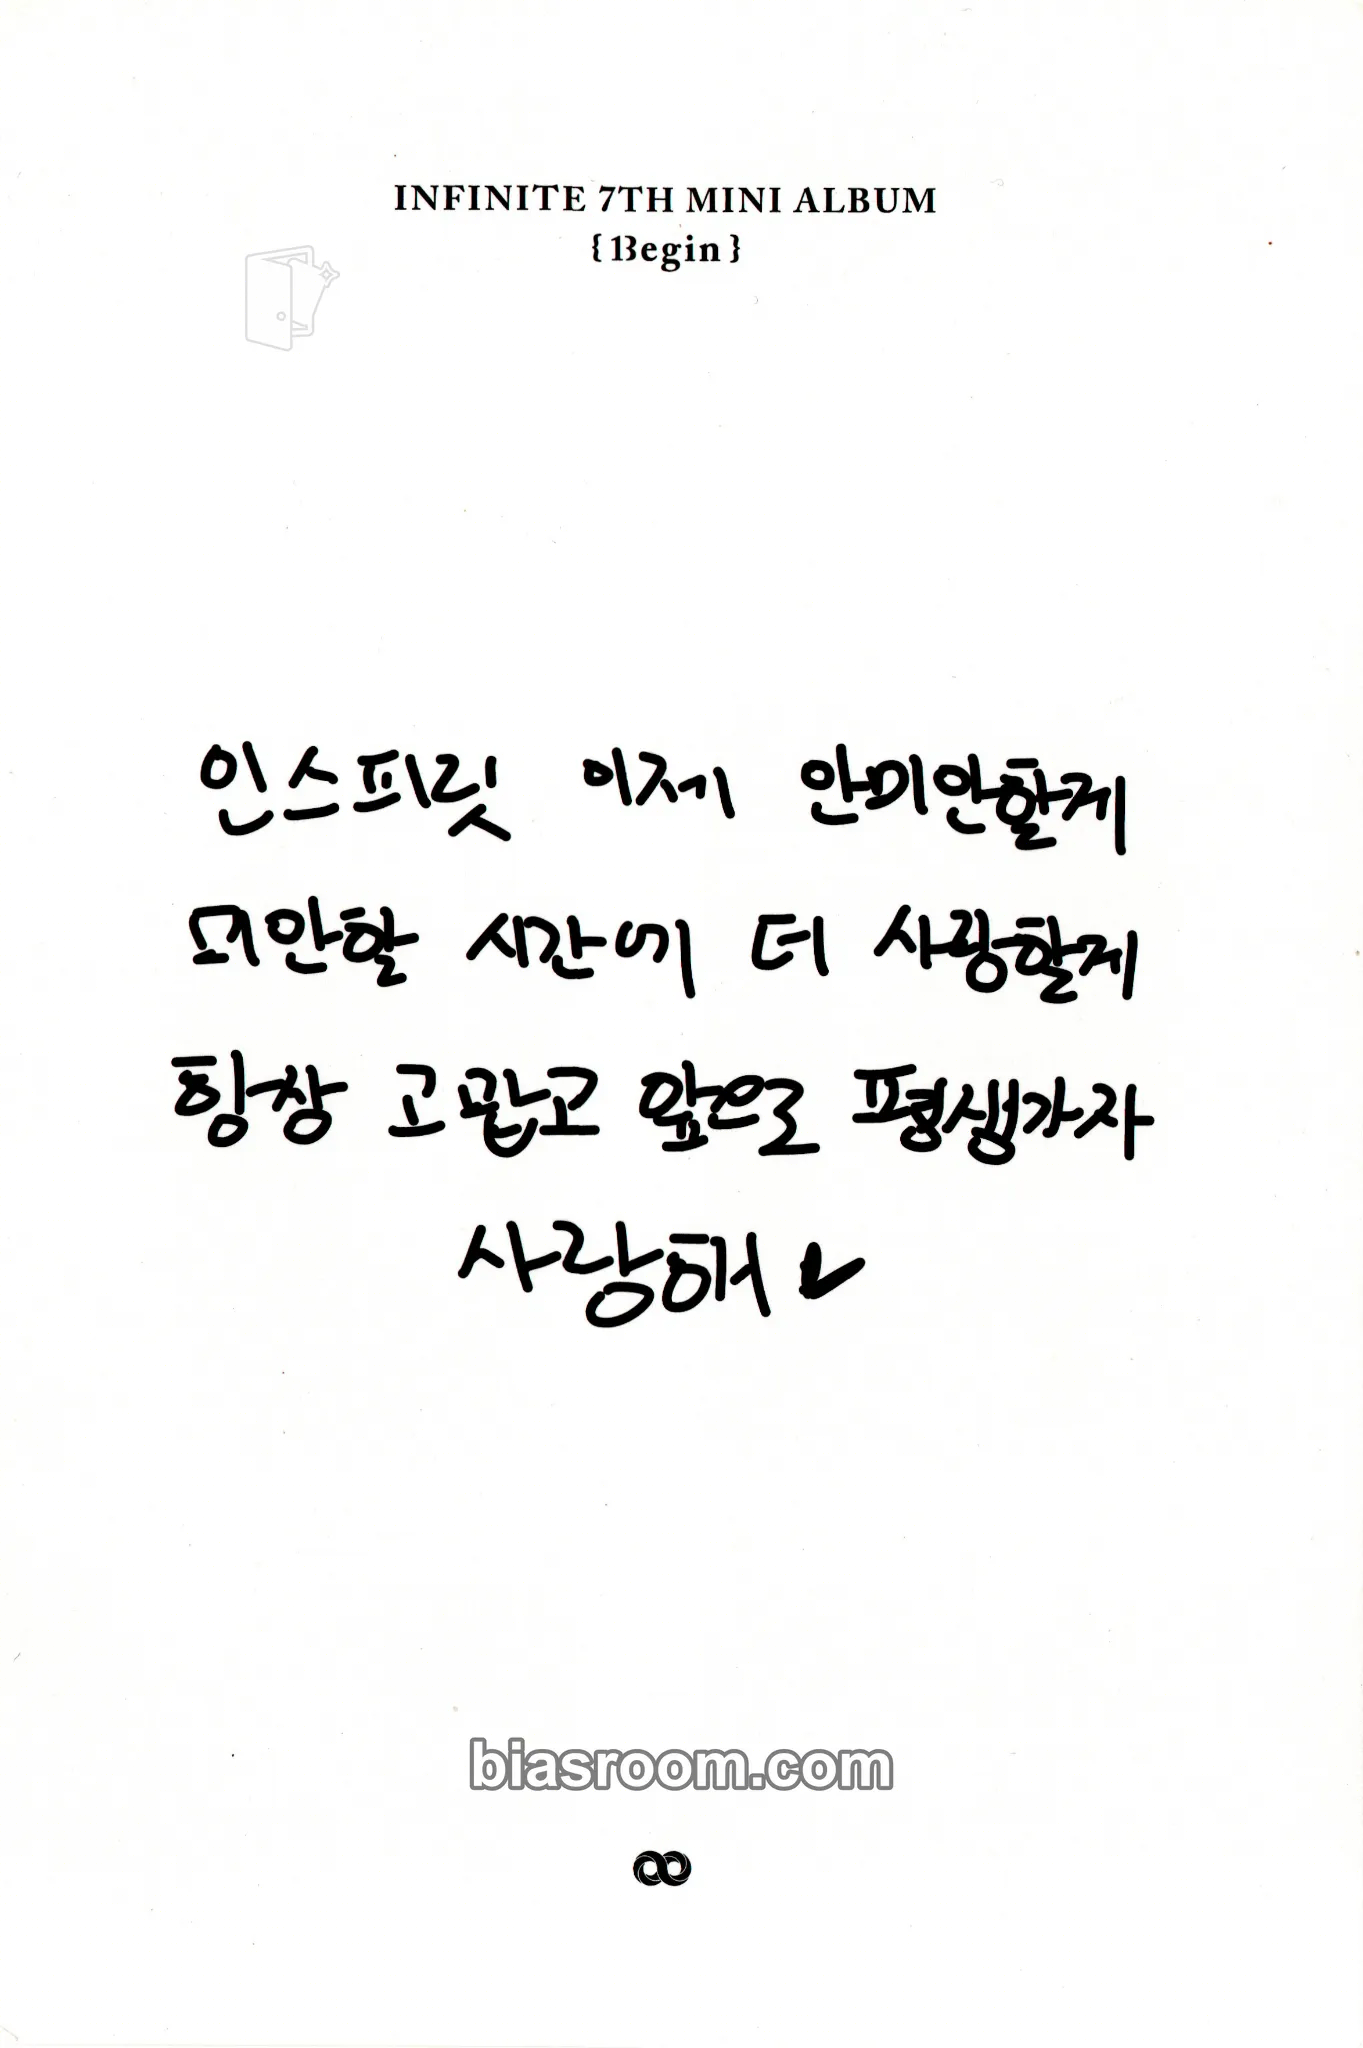 INFINITE 7TH MINI ALBUM
{13egin}
인스피릿 이제 안미안할게
미안할 시간에 더 사랑할게
항상 고맙고 앞으로 평생가자
사랑해
biasroom.com